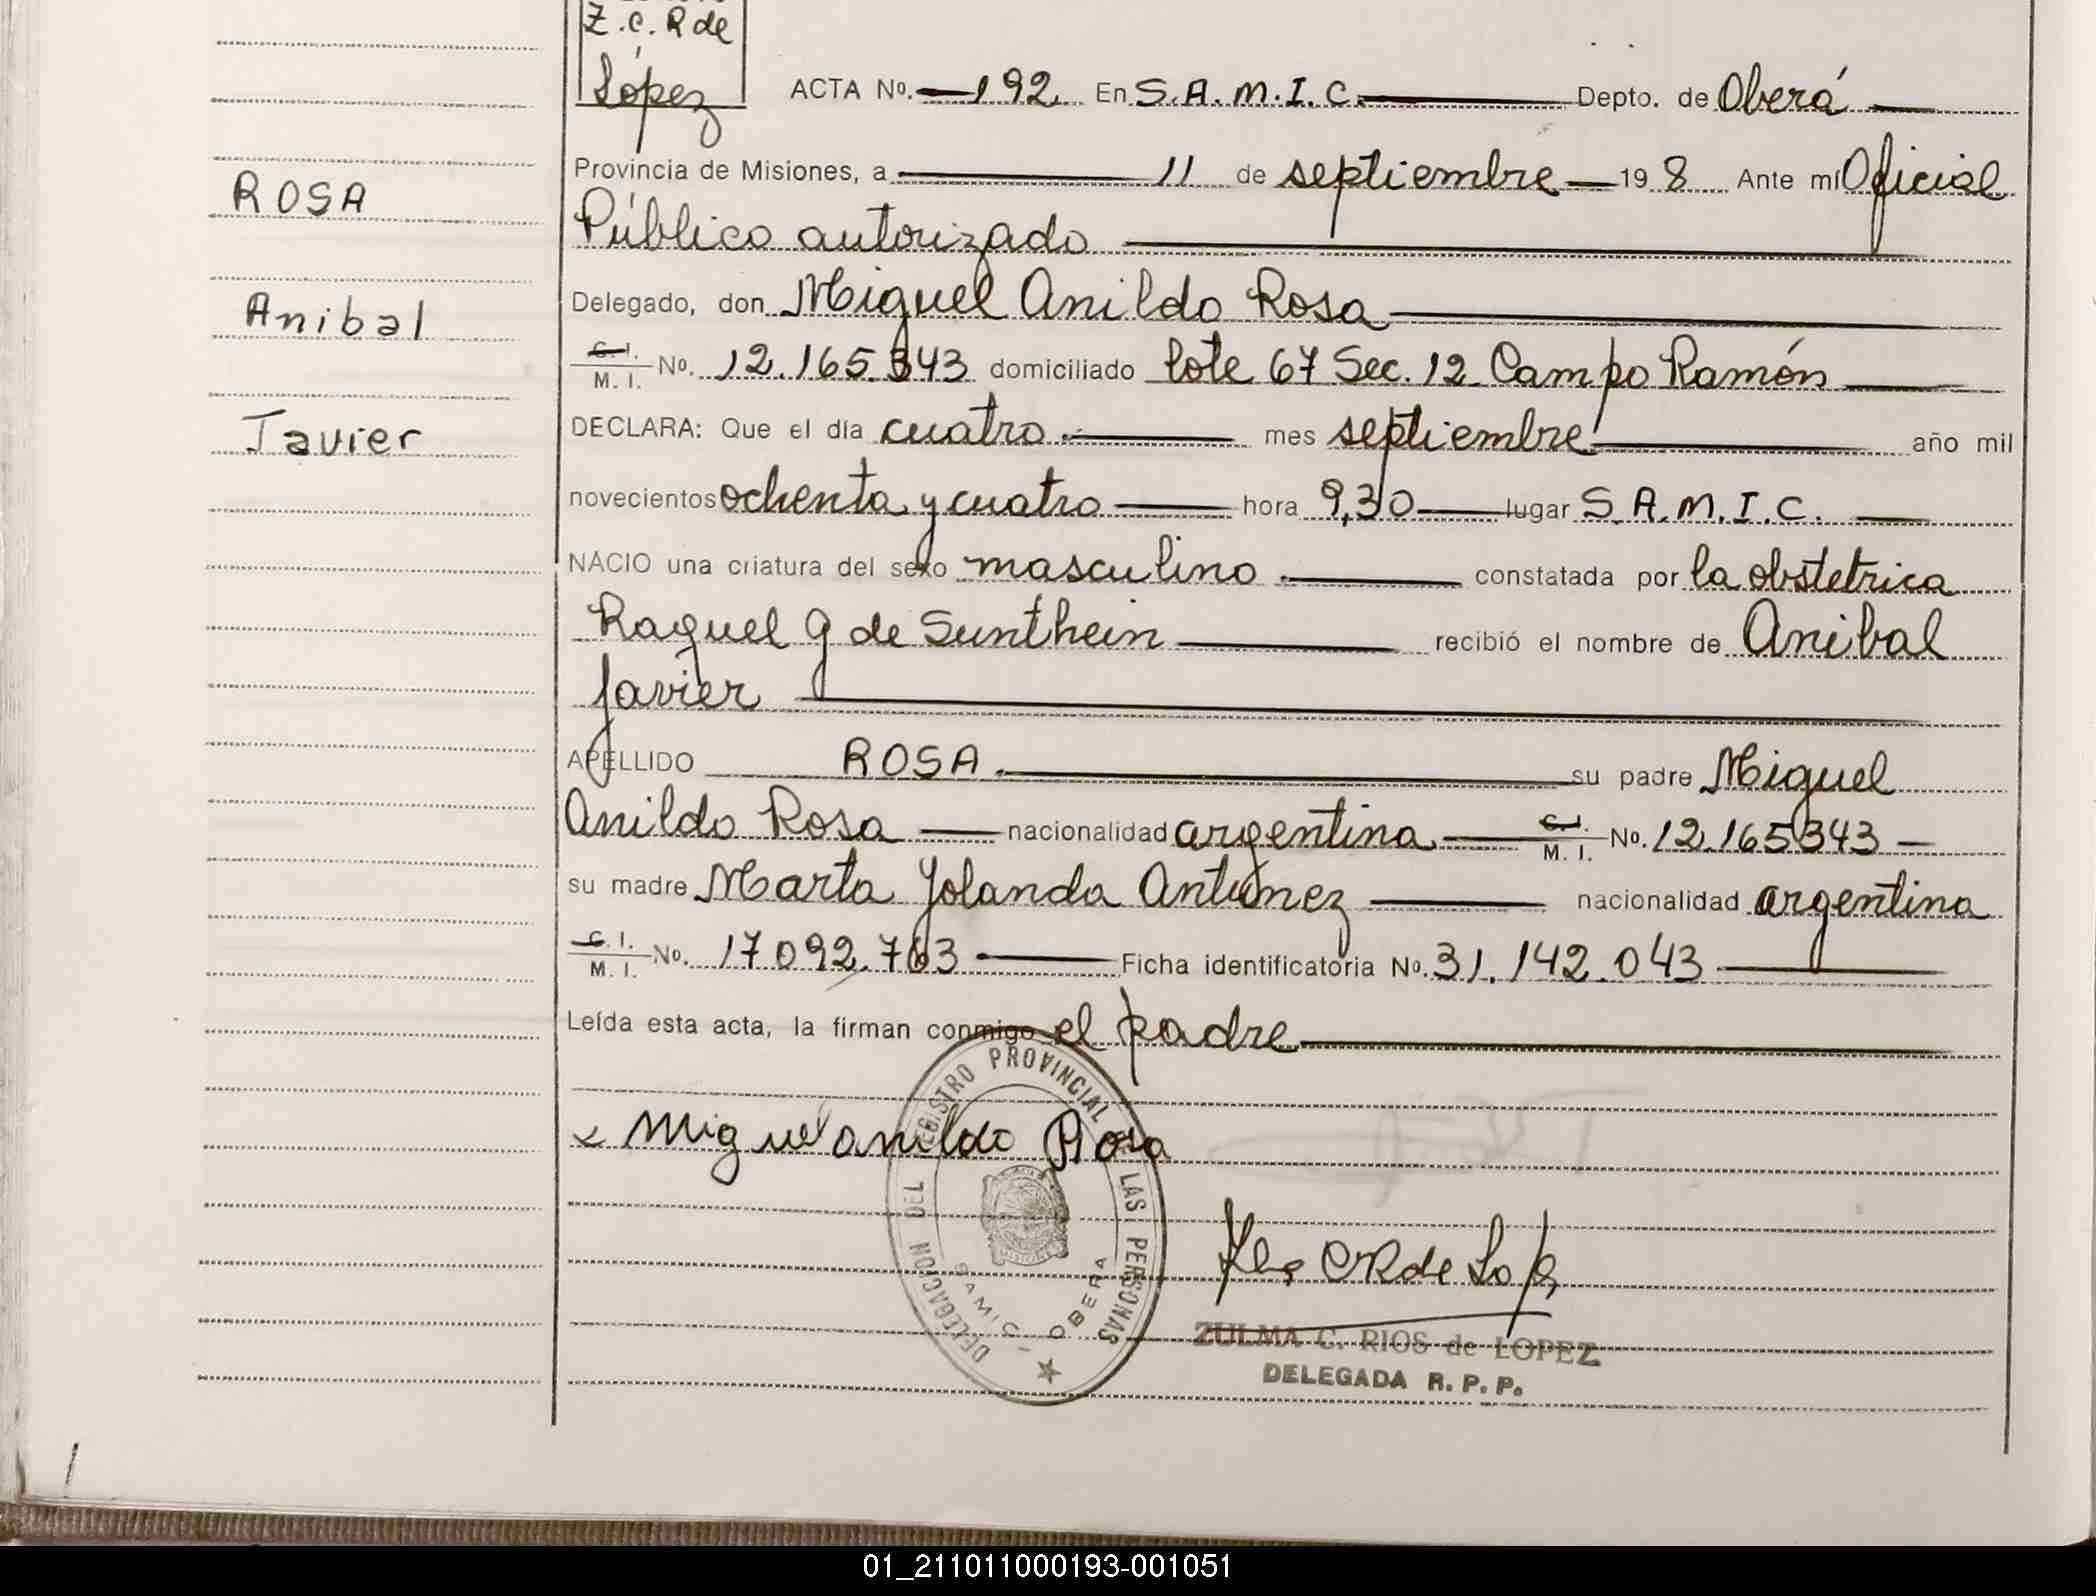 Z. C. R de
López
ACTA Nº. 192 En S.A.M.I.C. Depto. de Oberá
Provincia de Misiones, a 11 de septiembre 19 8 Ante mí Oficial
Público autorizado
Delegado, don Miguel Anildo Rosa
C. I.
M. I. Nº. 12.165.343 domiciliado lote 67 Sec. 12 Campo Ramón
DECLARA: Que el día cuatro mes septiembre año mil
novecientos ochenta y cuatro hora 9,30 lugar S.A.M.I.C.
NACIO una criatura del sexo masculino constatada por la obstetrica
Raquel G de Sunthein recibió el nombre de Anibal
Javier
APELLIDO ROSA su padre Miguel
Anildo Rosa nacionalidad argentina C. I.
M. I. Nº. 12.165343
su madre Marta Yolanda Antunez nacionalidad argentina
C. I.
M. I. Nº. 17092.763 Ficha identificatoria Nº. 31.142.043
Leída esta acta, la firman conmigo el padre
ROSA
Anibal
Javier
x Miguel anildo Rosa
DELEGACION DEL REGISTRO PROVINCIAL DE LAS PERSONAS
SAMIC - OBERA
ZULMA C. RIOS de LOPEZ
DELEGADA R. P. P.
01_211011000193-001051